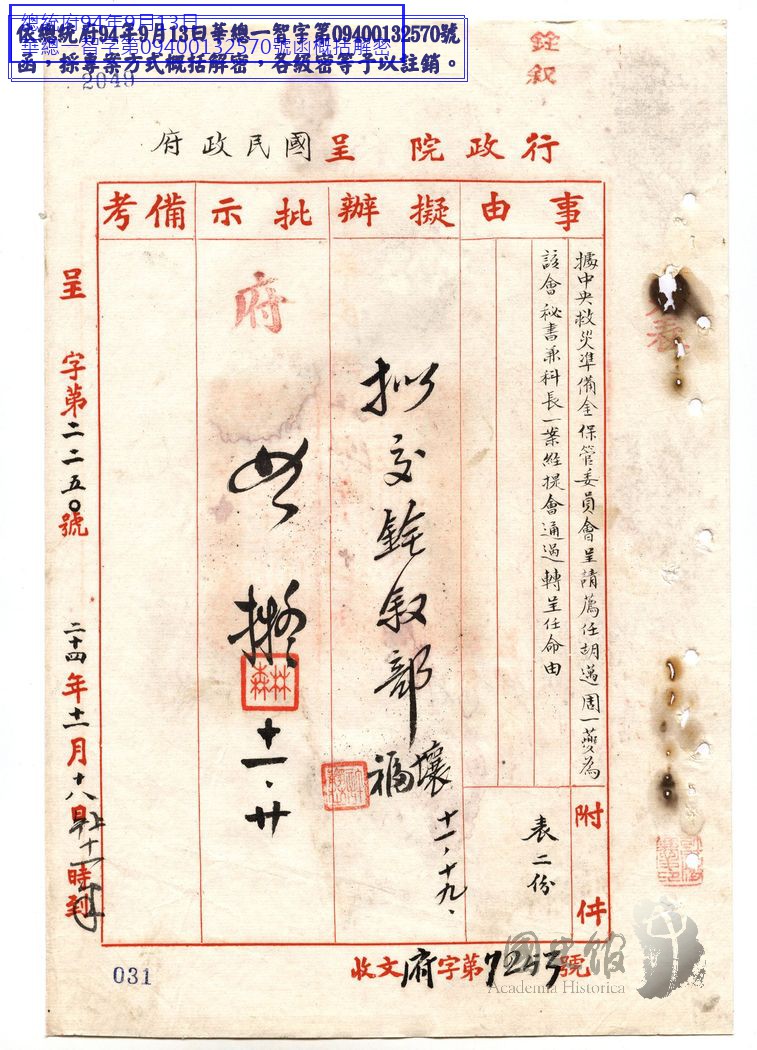 總統府94年9月13日
華總一智字第09400132570號函概括解密
依總統府94年9月13日華總一智字第09400132570號
函，採專案方式概括解密，各級密等予以註銷。
2049
銓叙
行政院 呈國民政府
事由
擬辦
批示
備考
據中央救災準備金保管委員會呈請薦任胡邁周一夔為
該會秘書兼科長一案經提會通過轉呈任命由
附件
表二份
拟交銓叙部
壤
福
十一、十九、
府
如擬
林森
十一、廿
呈 字第二二五〇號
二十四年十一月十八日上十一時到
收文府字第7253號
031
國史館
Academia Historica